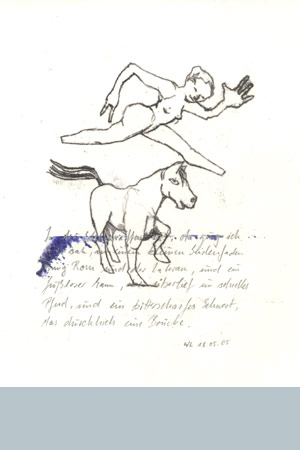 In der da ging ich
sah, an einem kleinen Seidenfaden
hing Rom und der Lateran, und ein
fußloser Mann, der überlief ein schnelles
Pferd, und ein bitterscharfes Schwert,
das durchhieb eine Brücke.
18.05.05